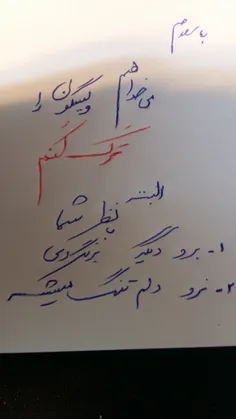 با سلام
می خواهم ویسگون را
ترک کنم
البته
با نظر شما
۱- برو دیگر برنگردی
۲- نرو دلم تنگ میشه